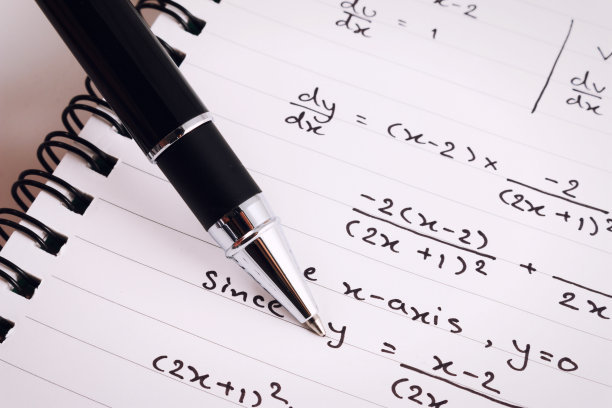 x-2
du/dx = 1
dv/dx
dy/dx = (x-2) × -2/(2x+1)²
-2(x-2)/(2x+1)² +
2x
since x-axis, y=0
y = x-2/(2x
(2x+1)²